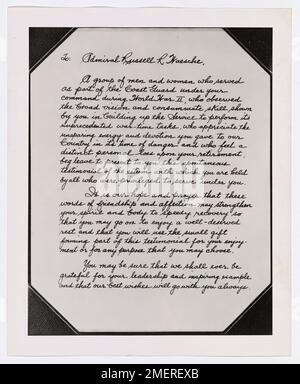 To: Admiral Russell R. Waesche:
A group of men and women who served
as part of the Coast Guard under your
command during World War II, who observed
the broad vision and consummate skill shown
by you in building up the Service to perform its
unprecedented war-time tasks, who appreciate the
unsparing energy and devotion you gave to our
Country in its time of danger and who feel a
distinct personal loss upon your retirement,
beg leave to present to you this spontaneous
testimonial of the esteem with which you are held
by all who were privileged to serve under you.
It is our hope and prayer that these
words of friendship and affection may strengthen
your spirit and body to speedy recovery so
that you may go on to enjoy a well-deserved
rest and that you will use the small gift
forming part of this testimonial for your enjoy-
ment or for any purpose that you may choose.
You may be sure that we shall ever be
grateful for your leadership and inspiring example
and that our best wishes will go with you always.
alamy
Image ID: 2MEREXB
www.alamy.com